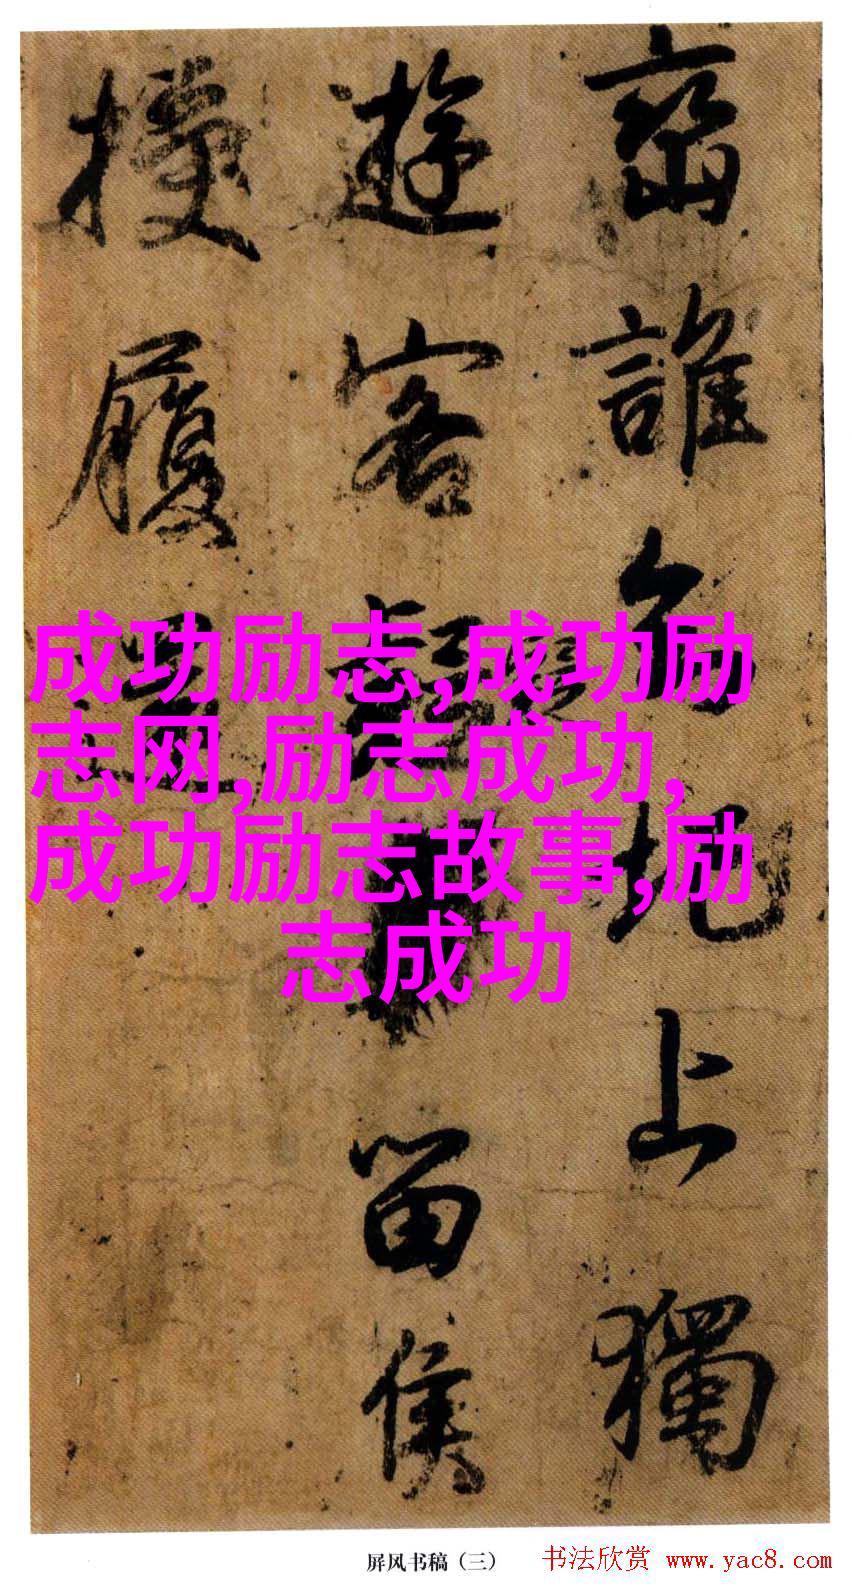 巒誰向圯上獨
遊客
留侯
擾履
成功励志,成功励
志网,励志成功,
成功励志故事,励
志成功
屏风书稿(三)
书法欣赏 www.yac8.com